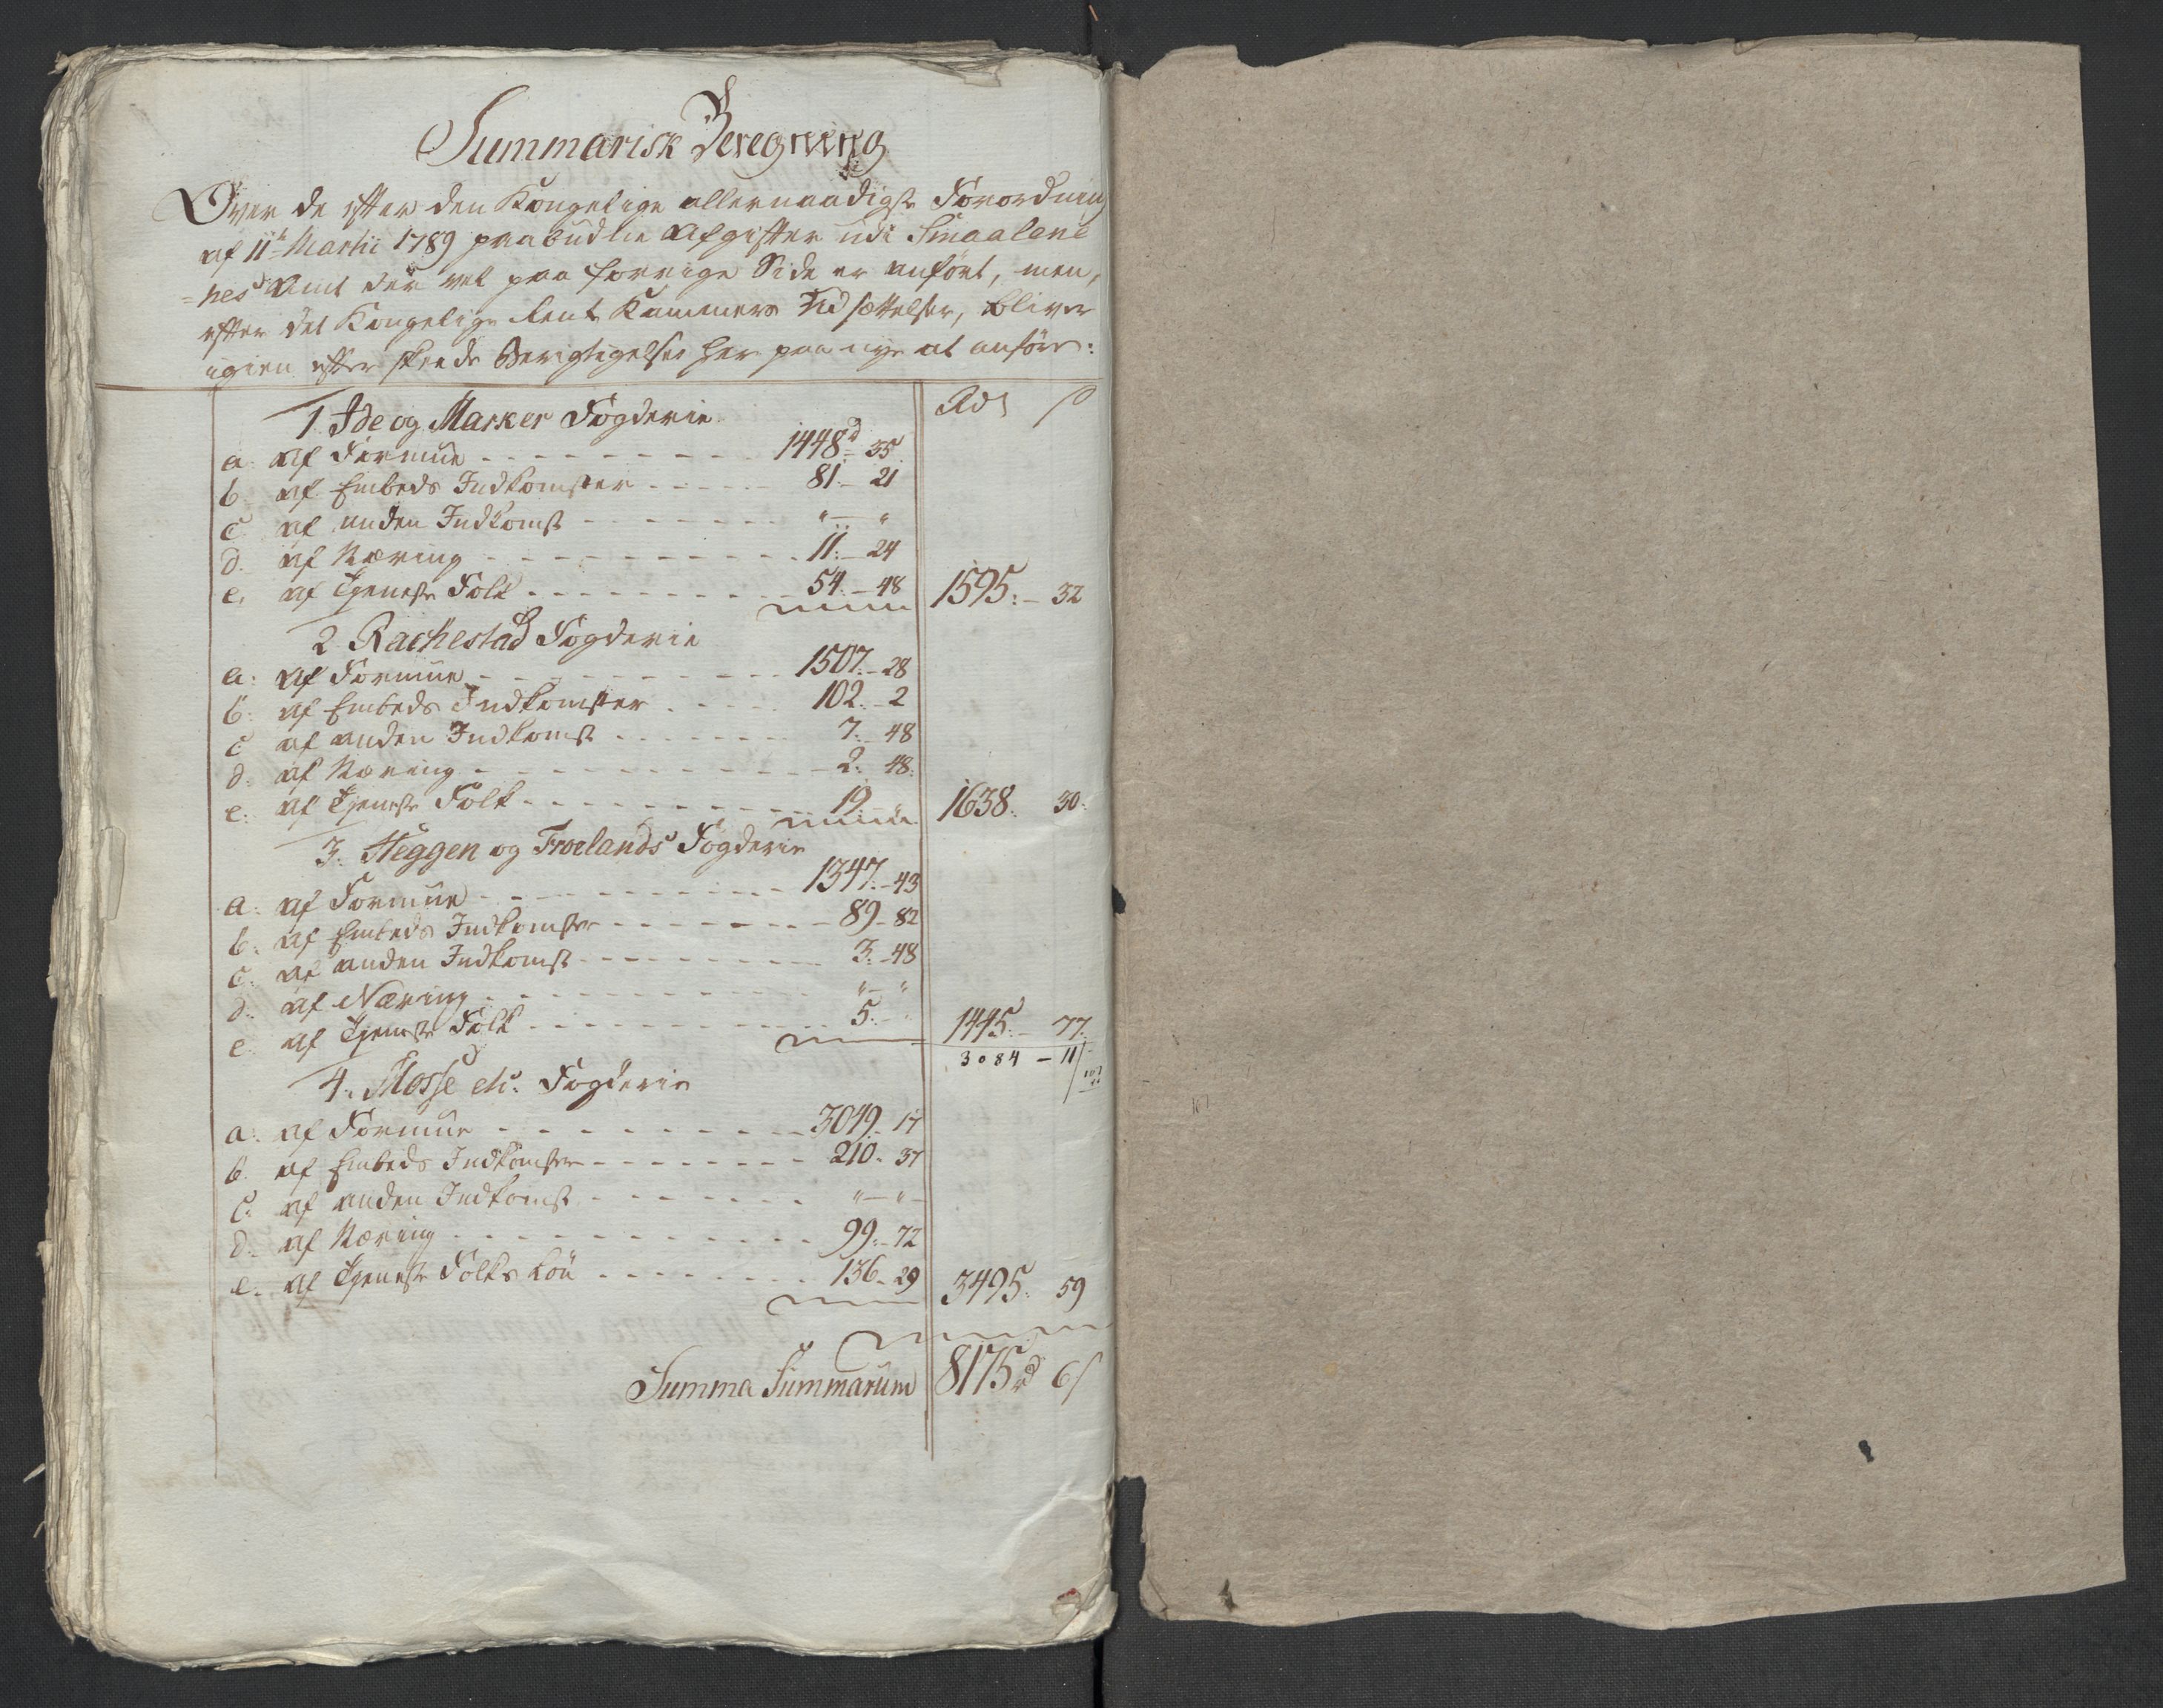 Summarisk Beregning
Over de efter den Kongelige allernaadigste Forordning
af 11te Martii 1789 paabudne Afgifter udi Smaalene
=nes Amt der vel paa forrige Side er anført, men,
efter det Kongelige Rente Kammers Udsættelser, bliver
igien efter skeede Berigtigelser her paa nye at anføre:
Rdl ß
1 Ide og Marker Fogderie
a. af Formue - - - - - - - - - 1448d - 35.
b. af Embeds Indkomster - - - - - 81. - 21
c. af anden Indkomst - - - - - - - " - "
d. af Næring - - - - - - - - - - 11. - 24
e. af Tjeneste Folk - - - - - - - - - 54. - 48 1595. - 32
2. Rachestad Fogderie
a. af Formue - - - - - - - - - - 1507. - 28
b. af Embeds Indkomster - - - - 102. - 2
c. af anden Indkomst - - - - - - - 7. - 48
d. af Næring - - - - - - - - - - - 2. 48.
e. af Tjeneste Folk - - - - - - - - - 19. - " 1638. 30.
3. Heggen og Froelands Fogderie
a. af Formue - - - - - - - - - - 1347. - 43
b. af Embeds Indkomster - - - - - - - 89 - 82
c. af anden Indkomst - - - - - - - - - 3. - 48
d. af Næring - - - - - - - - - - " - "
e. af Tjeneste Folk - - - - - - - - - - 5. - " 1445. - 77.
3084 - 11
4. Mosse etc. Fogderie
a. af Formue - - - - - - - - - 3049. - 17
b. af Embeds Indkomster - - - - - - - 210. 37
c. af anden Indkomst - - - - - - - " - " -
d. af Næring - - - - - - - - - - - 99. - 72
e. af Tjeneste Folks Løn - - - - - - - 136 - 29 3495. 59
Summa Summarum 8175rd 6ß